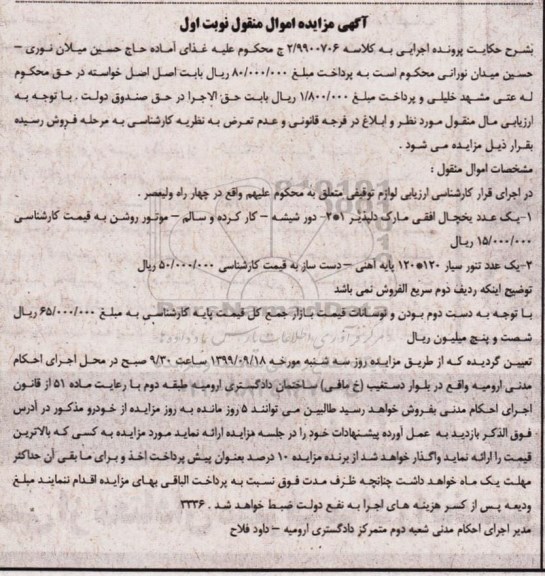 آگهی مزایده اموال منقول نوبت اول
بشرح حکایت پرونده اجرایی به کلاسه ۲/۹۹۰۰۷۰۶ ج محکوم علیه غذای آماده حاج حسین میلان نوری –
حسین میدان نورانی محکوم است به پرداخت مبلغ ۸۰/۰۰۰/۰۰۰ ریال بابت اصل اصل خواسته در حق محکوم
له عتی مشهد خلیلی و پرداخت مبلغ ۱/۸۰۰/۰۰۰ ریال بابت حق الاجرا در حق صندوق دولت . با توجه به
ارزیابی مال منقول مورد نظر و ابلاغ در فرجه قانونی و عدم تعرض به نظریه کارشناسی به مرحله فروش رسیده
بقرار ذیل مزایده می شود .
مشخصات اموال منقول :
در اجرای قرار کارشناسی ارزیابی لوازم توقیفی متعلق به محکوم علیهم واقع در چهار راه ولیعصر .
۱–یک عدد یخچال افقی مارک دلپذیر ۱*۲– دور شیشه – کار کرده و سالم – موتور روشن به قیمت کارشناسی
۱۵/۰۰۰/۰۰۰ ریال
۲–یک عدد تنور سیار ۱۲۰*۱۲۰ پایه آهنی – دست ساز به قیمت کارشناسی ۵۰/۰۰۰/۰۰۰ ریال
توضیح اینکه ردیف دوم سریع الفروش نمی باشد
با توجه به دست دوم بودن و نوسانات قیمت بازار جمع کل قیمت پایه کارشناسی به مبلغ ۶۵/۰۰۰/۰۰۰ ریال
شصت و پنج میلیون ریال
تعیین گردیده که از طریق مزایده روز سه شنبه مورخه ۱۳۹۹/۰۹/۱۸ ساعت ۹/۳۰ صبح در محل اجرای احکام
مدنی ارومیه واقع در بلوار دستغیب (خ مافی) ساختمان دادگستری ارومیه طبقه دوم با رعایت ماده ۵۱ از قانون
اجرای احکام مدنی بفروش خواهد رسید طالبین می توانند ۵ روز مانده به روز مزایده از خودرو مذکور در آدرس
فوق الذکر بازدید به عمل آورده پیشنهادات خود را در جلسه مزایده ارائه نماید مورد مزایده به کسی که بالاترین
قیمت را ارائه نماید واگذار خواهد شد از برنده مزایده ۱۰ درصد بعنوان پیش پرداخت اخذ و برای ما بقی آن حداکثر
مهلت یک ماه خواهد داشت چنانچه ظرف مدت فوق نسبت به پرداخت الباقی بهای مزایده اقدام ننمایند مبلغ
ودیعه پس از کسر هزینه های اجرا به نفع دولت ضبط خواهد شد . ۳۳۳۶
مدیر اجرای احکام مدنی شعبه دوم متمرکز دادگستری ارومیه – داود فلاح